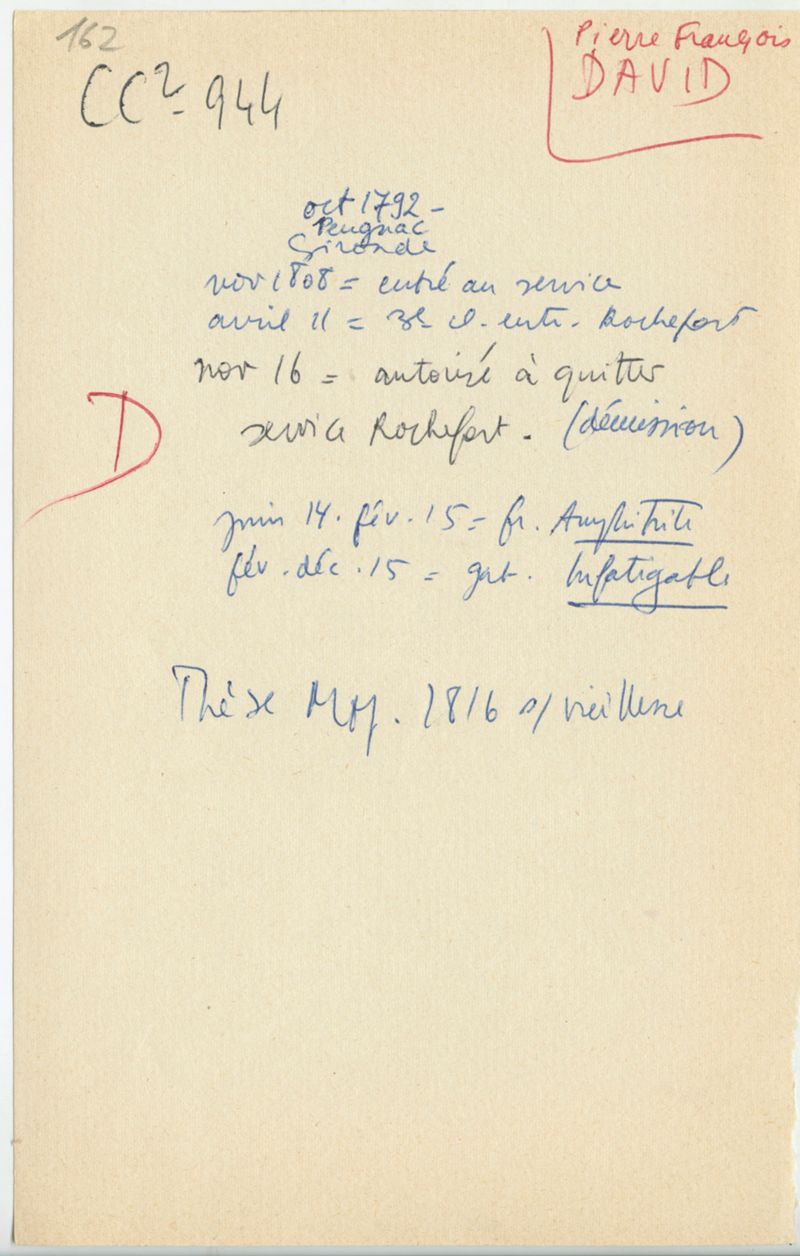 162
CC2- 944
Pierre François
DAVID
oct 1792 -
Peugnac
Gironde
nov 1808 = entré au service
avril 11 = 3e cl. entr. Rochefort
nov 16 = autorisé à quitter
service Rochefort. (démission)
D
juin 14. fév. 15 = fr. Amphitrite
fév. déc. 15 = gab. Infatigable
Thèse 1816 s/ vieillesse